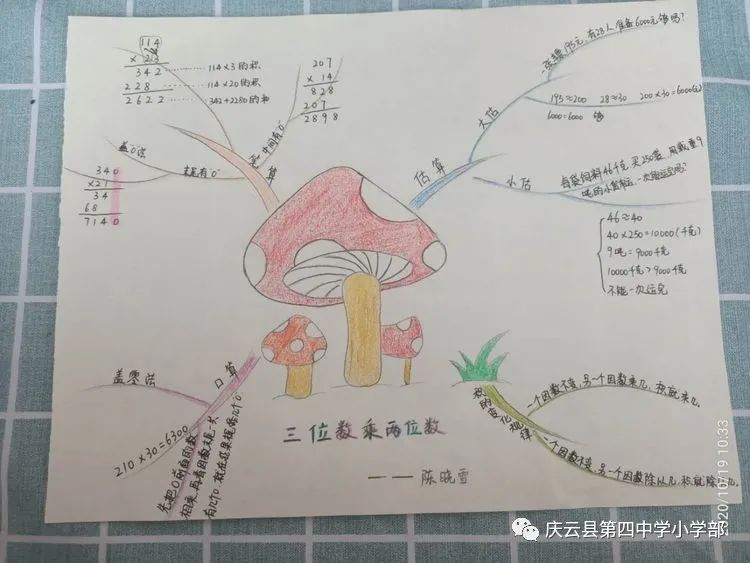 114
× 23
342 114×3的积
228 114×20的积
2622 342+2280的和
207
× 14
828
207
2898
中间有"0"
笔算
末尾有"0"
盖0法
340
×21
34
68
7140
估算
大估
一张票195元,有28人,准备6000元够吗?
195≈200 28≈30 200×30=6000(元)
6000=6000 够
小估
每袋饲料46千克,买250袋,用载重9
吨的小货车运,一次能运完吗?
46≈40
40×250=10000(千克)
9吨=9000千克
10000千克>9000千克
不能一次运完
口算
盖零法
210×30=6300
先把0前面的数
相乘,再看因数末尾一共
有几个0,就在结果末尾添几个0
积的变化规律
一个因数不变,另一个因数乘几,积就乘几.
一个因数不变,另一个因数除以几,积就除以几.
三位数乘两位数
——陈晓雪
2020/10/19 10:33
庆云县第四中学小学部